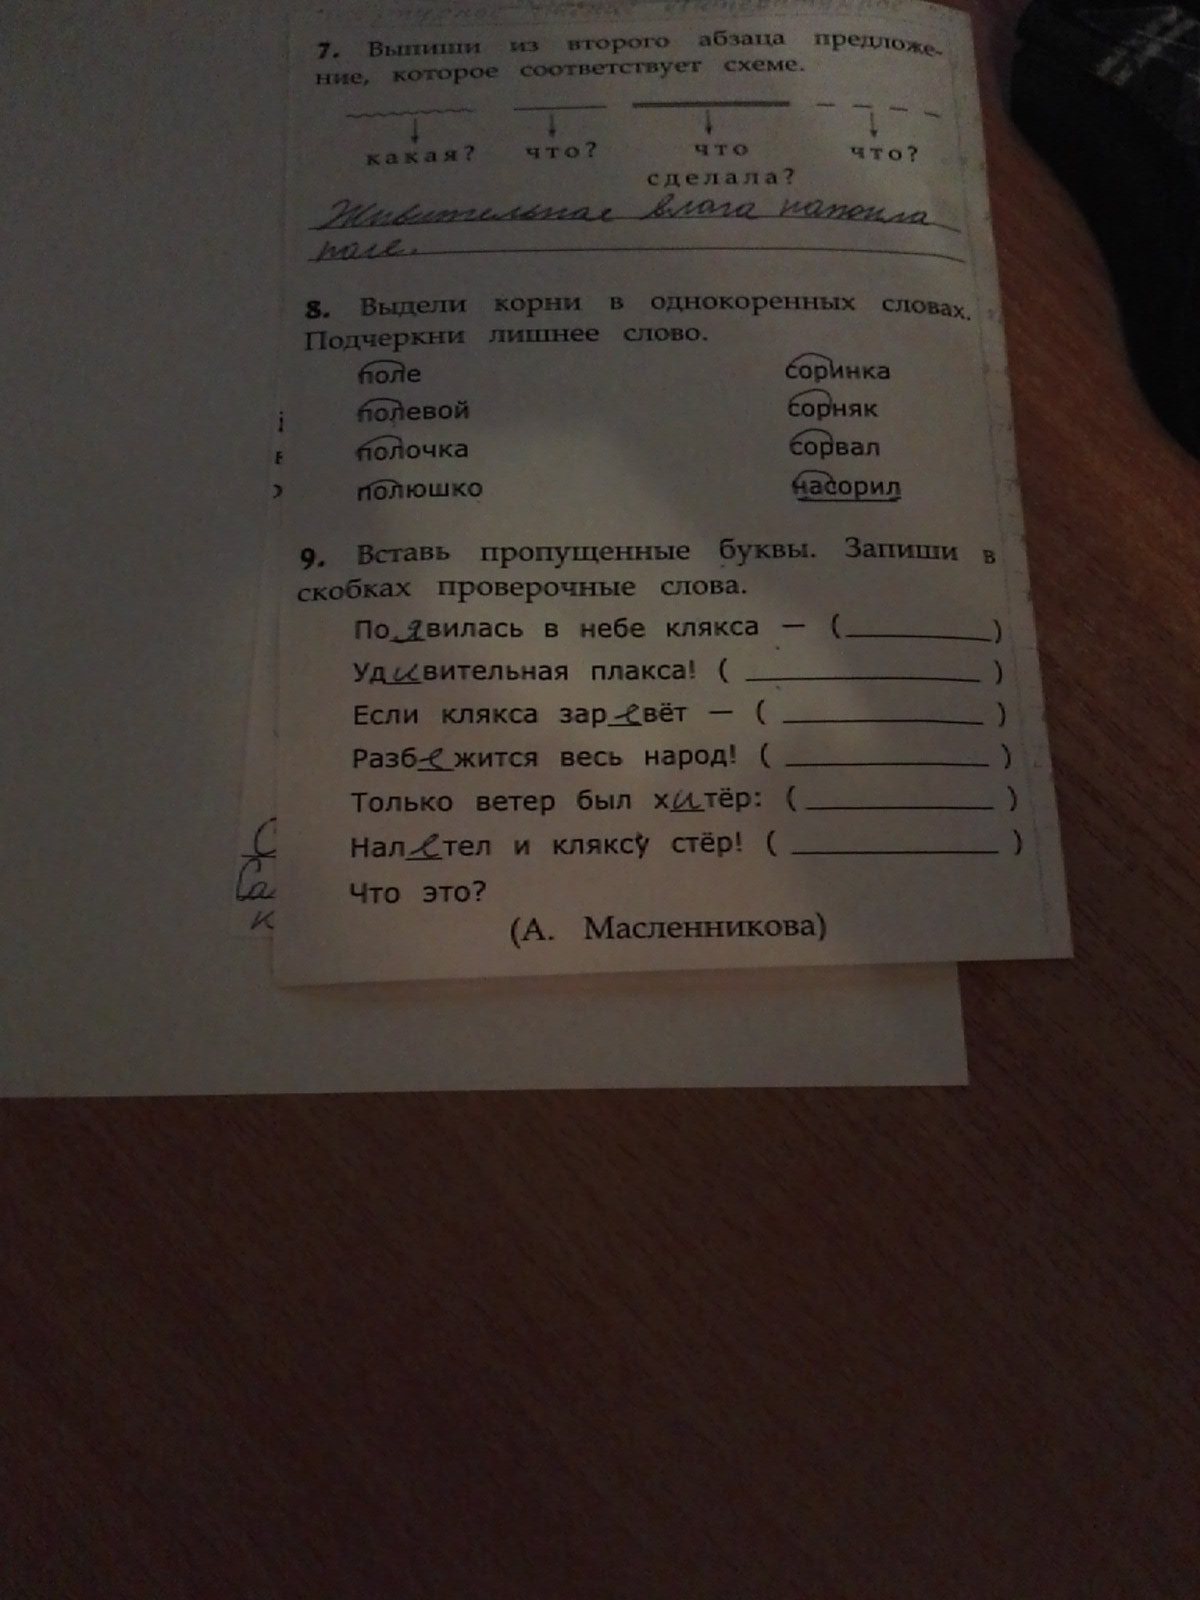 7. Выпиши из второго абзаца предложе-
ние, которое соответствует схеме.
какая? что? что что?
сделала?
Живительная влага напоила
поле.
8. Выдели корни в однокоренных словах.
Подчеркни лишнее слово.
поле соринка
полевой сорняк
полочка сорвал
полюшко насорил
9. Вставь пропущенные буквы. Запиши в
скобках проверочные слова.
По_я_вилась в небе клякса — (________)
Уд_и_вительная плакса! (________)
Если клякса зар_е_вёт — (________)
Разб_е_жится весь народ! (________)
Только ветер был х_и_тёр: (________)
Нал_е_тел и кляксу стёр! (________)
Что это?
(А. Масленникова)